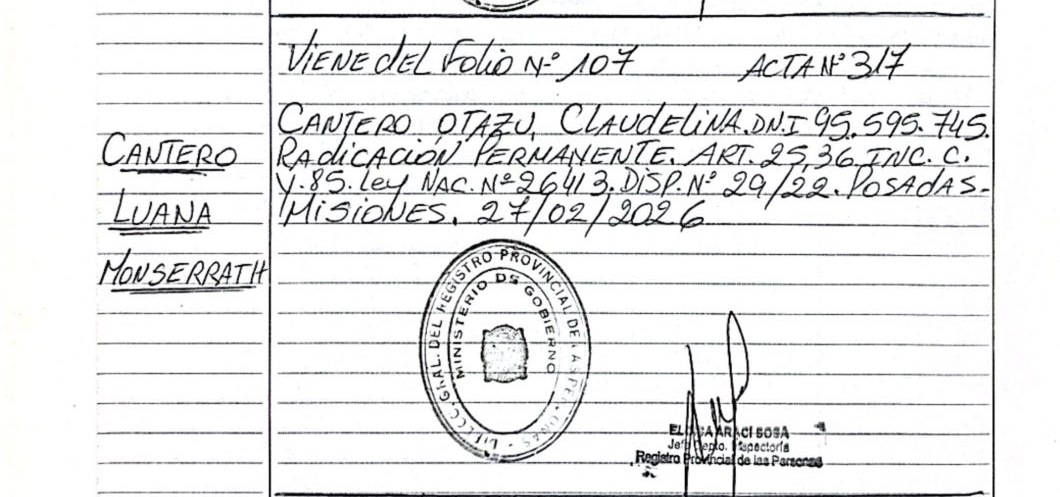 VIENE dEL FOLIO Nº 107 ACTA Nº 317
CANTERO OTAZU, CLAUdELiNA. D.N.I 95.595.745.
RAdiCACIÓN PERMANENTE. ART. 25,36. INC. C.
Y. 85. Ley NAC. Nº 26413. DISP. Nº 29/22. POSAdAS-
MISiONES. 27/02/2026
CANTERO
LUANA
MONSERRATH
GRAL. DEL REGISTRO PROVINCIAL DE LAS PERSONAS
MINISTERIO DE GOBIERNO
ARACÍ SOSA
Jefe Depto. Inspectoría
Registro Provincial de las Personas